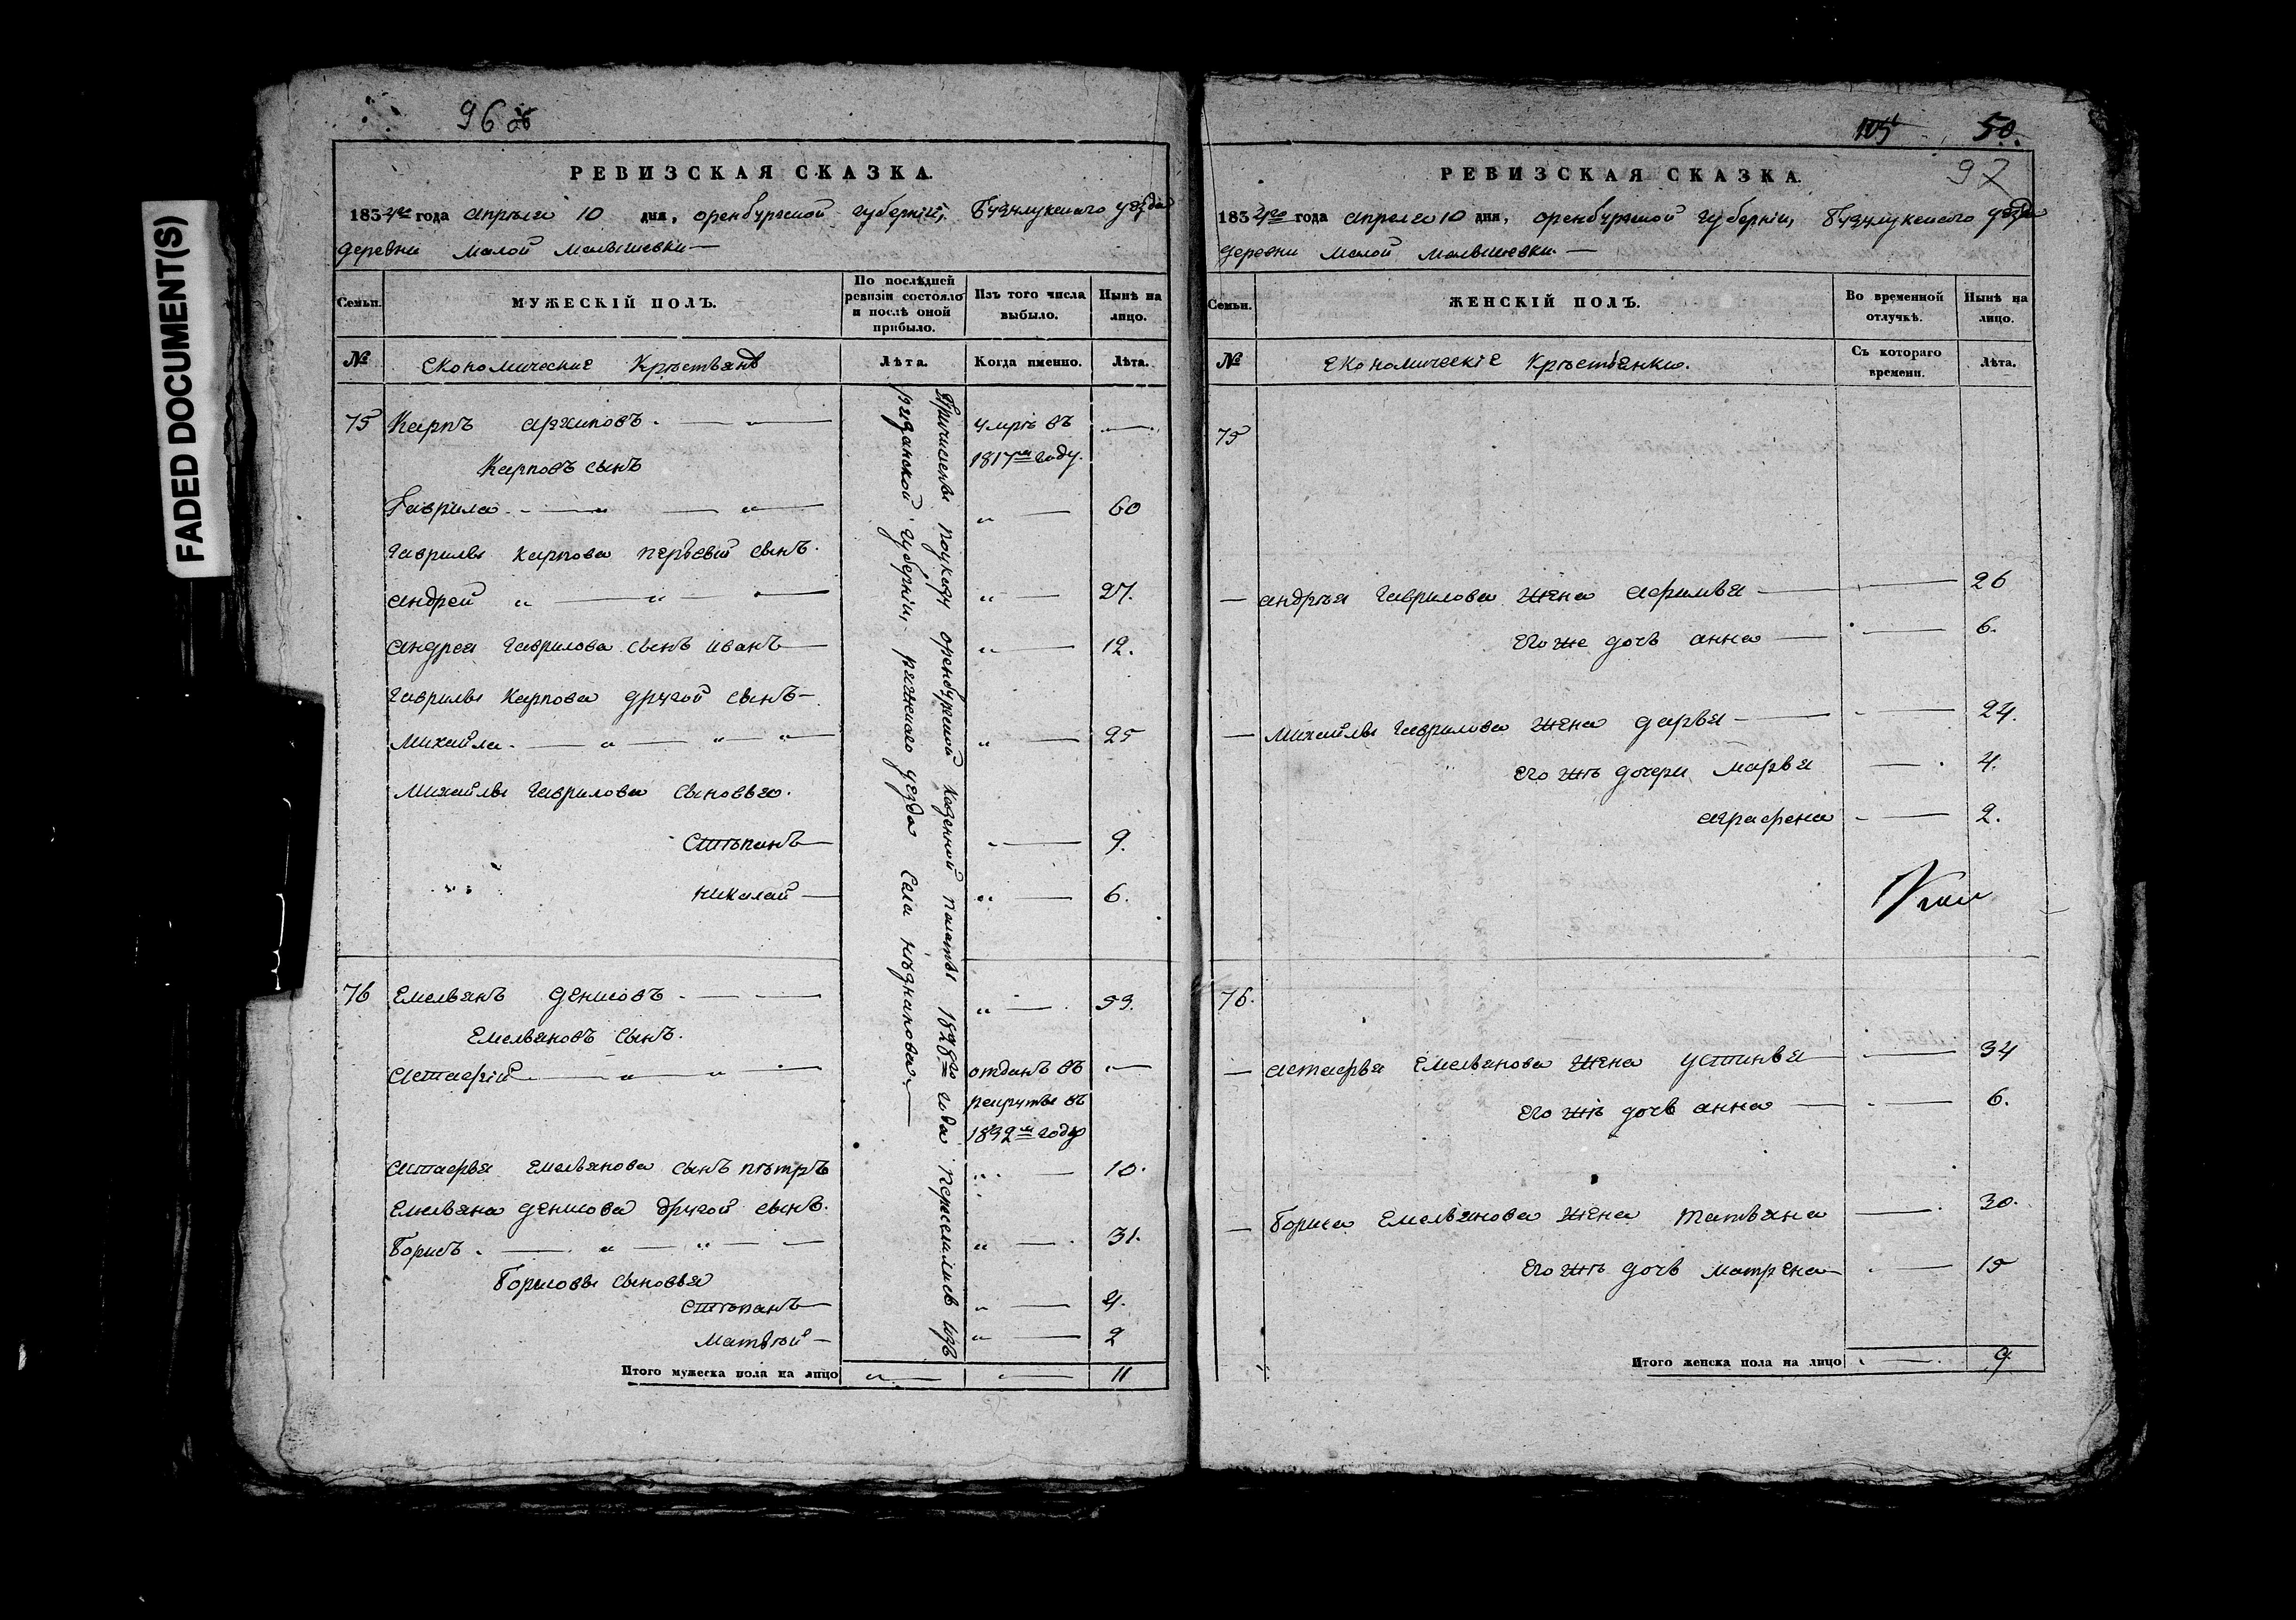 FADED DOCUMENT(S)
96 об
РЕВИЗСКАЯ СКАЗКА.
1834го года апреля 10 дня, оренбургской губернiи, Бузулукскаго уезда
деревни малой малышевки —
Семьи. МУЖЕСКIЙ ПОЛЪ. По послѣдней ревизiи состояло и послѣ оной прибыло. Изъ того числа выбыло. Нынѣ на лицо.
№ Економические Крѣстьянѣ Лѣта. Когда именно. Лѣта.
75 Карпъ архиповъ. — умрѣ въ —
Карповъ сынъ 1817м году.
Гаврила — „ — 60
Гаврилы карпова первый сынъ.
андрей „ — „ — 27.
андрея Гаврилова сынъ иванъ — „ — 12.
Гаврилы Карпова другой сынъ —
Михайла. — „ — 25
Михайлы Гаврилова сыновья.
Стѣпанъ — „ — 9.
николай — „ — 6.
76 Емельянъ денисовъ. — „ — 53.
Емельяновъ сынъ.
Астафiй — „ — отданъ въ —
рекруты въ
1832м году
Астафья Емельянова сынъ пѣтръ „ — 10.
Емельяна денисова другой сынъ.
Борисъ. — „ — 31.
Борисовы сыновья
Стѣпанъ — „ — 4.
Матвѣй — „ — 2
Итого мужеска пола на лицо „ — „ — 11
Причислены поуказу оренбургской казенной палаты 1828го года переселились изъ
резанской губернiи, ряжскаго уезда села
105 50.
97
РЕВИЗСКАЯ СКАЗКА.
1834го года апреля 10 дня, оренбургской губернiи, Бузулукскаго уезда
деревни малой малышевки. —
Семьи. ЖЕНСКIЙ ПОЛЪ. Во временной отлучкѣ. Нынѣ на лицо.
№ Економическiе Крѣстьянки. Съ котораго времени. Лѣта.
75
— андрѣя Гаврилова жена афимья — — 26
Его же дочь анна — — 6.
— Михайлы Гаврилова жена дарья — — 24.
Его жѣ дочери марья — 4.
аграфена — 2.
76.
— астафья Емельянова жена устинья — — 34
Его жѣ дочь анна — — 6.
— Бориса Емельянова жена татьяна — 30.
Его жѣ дочь матрена — — 15
Итого женска пола на лицо „ — 9